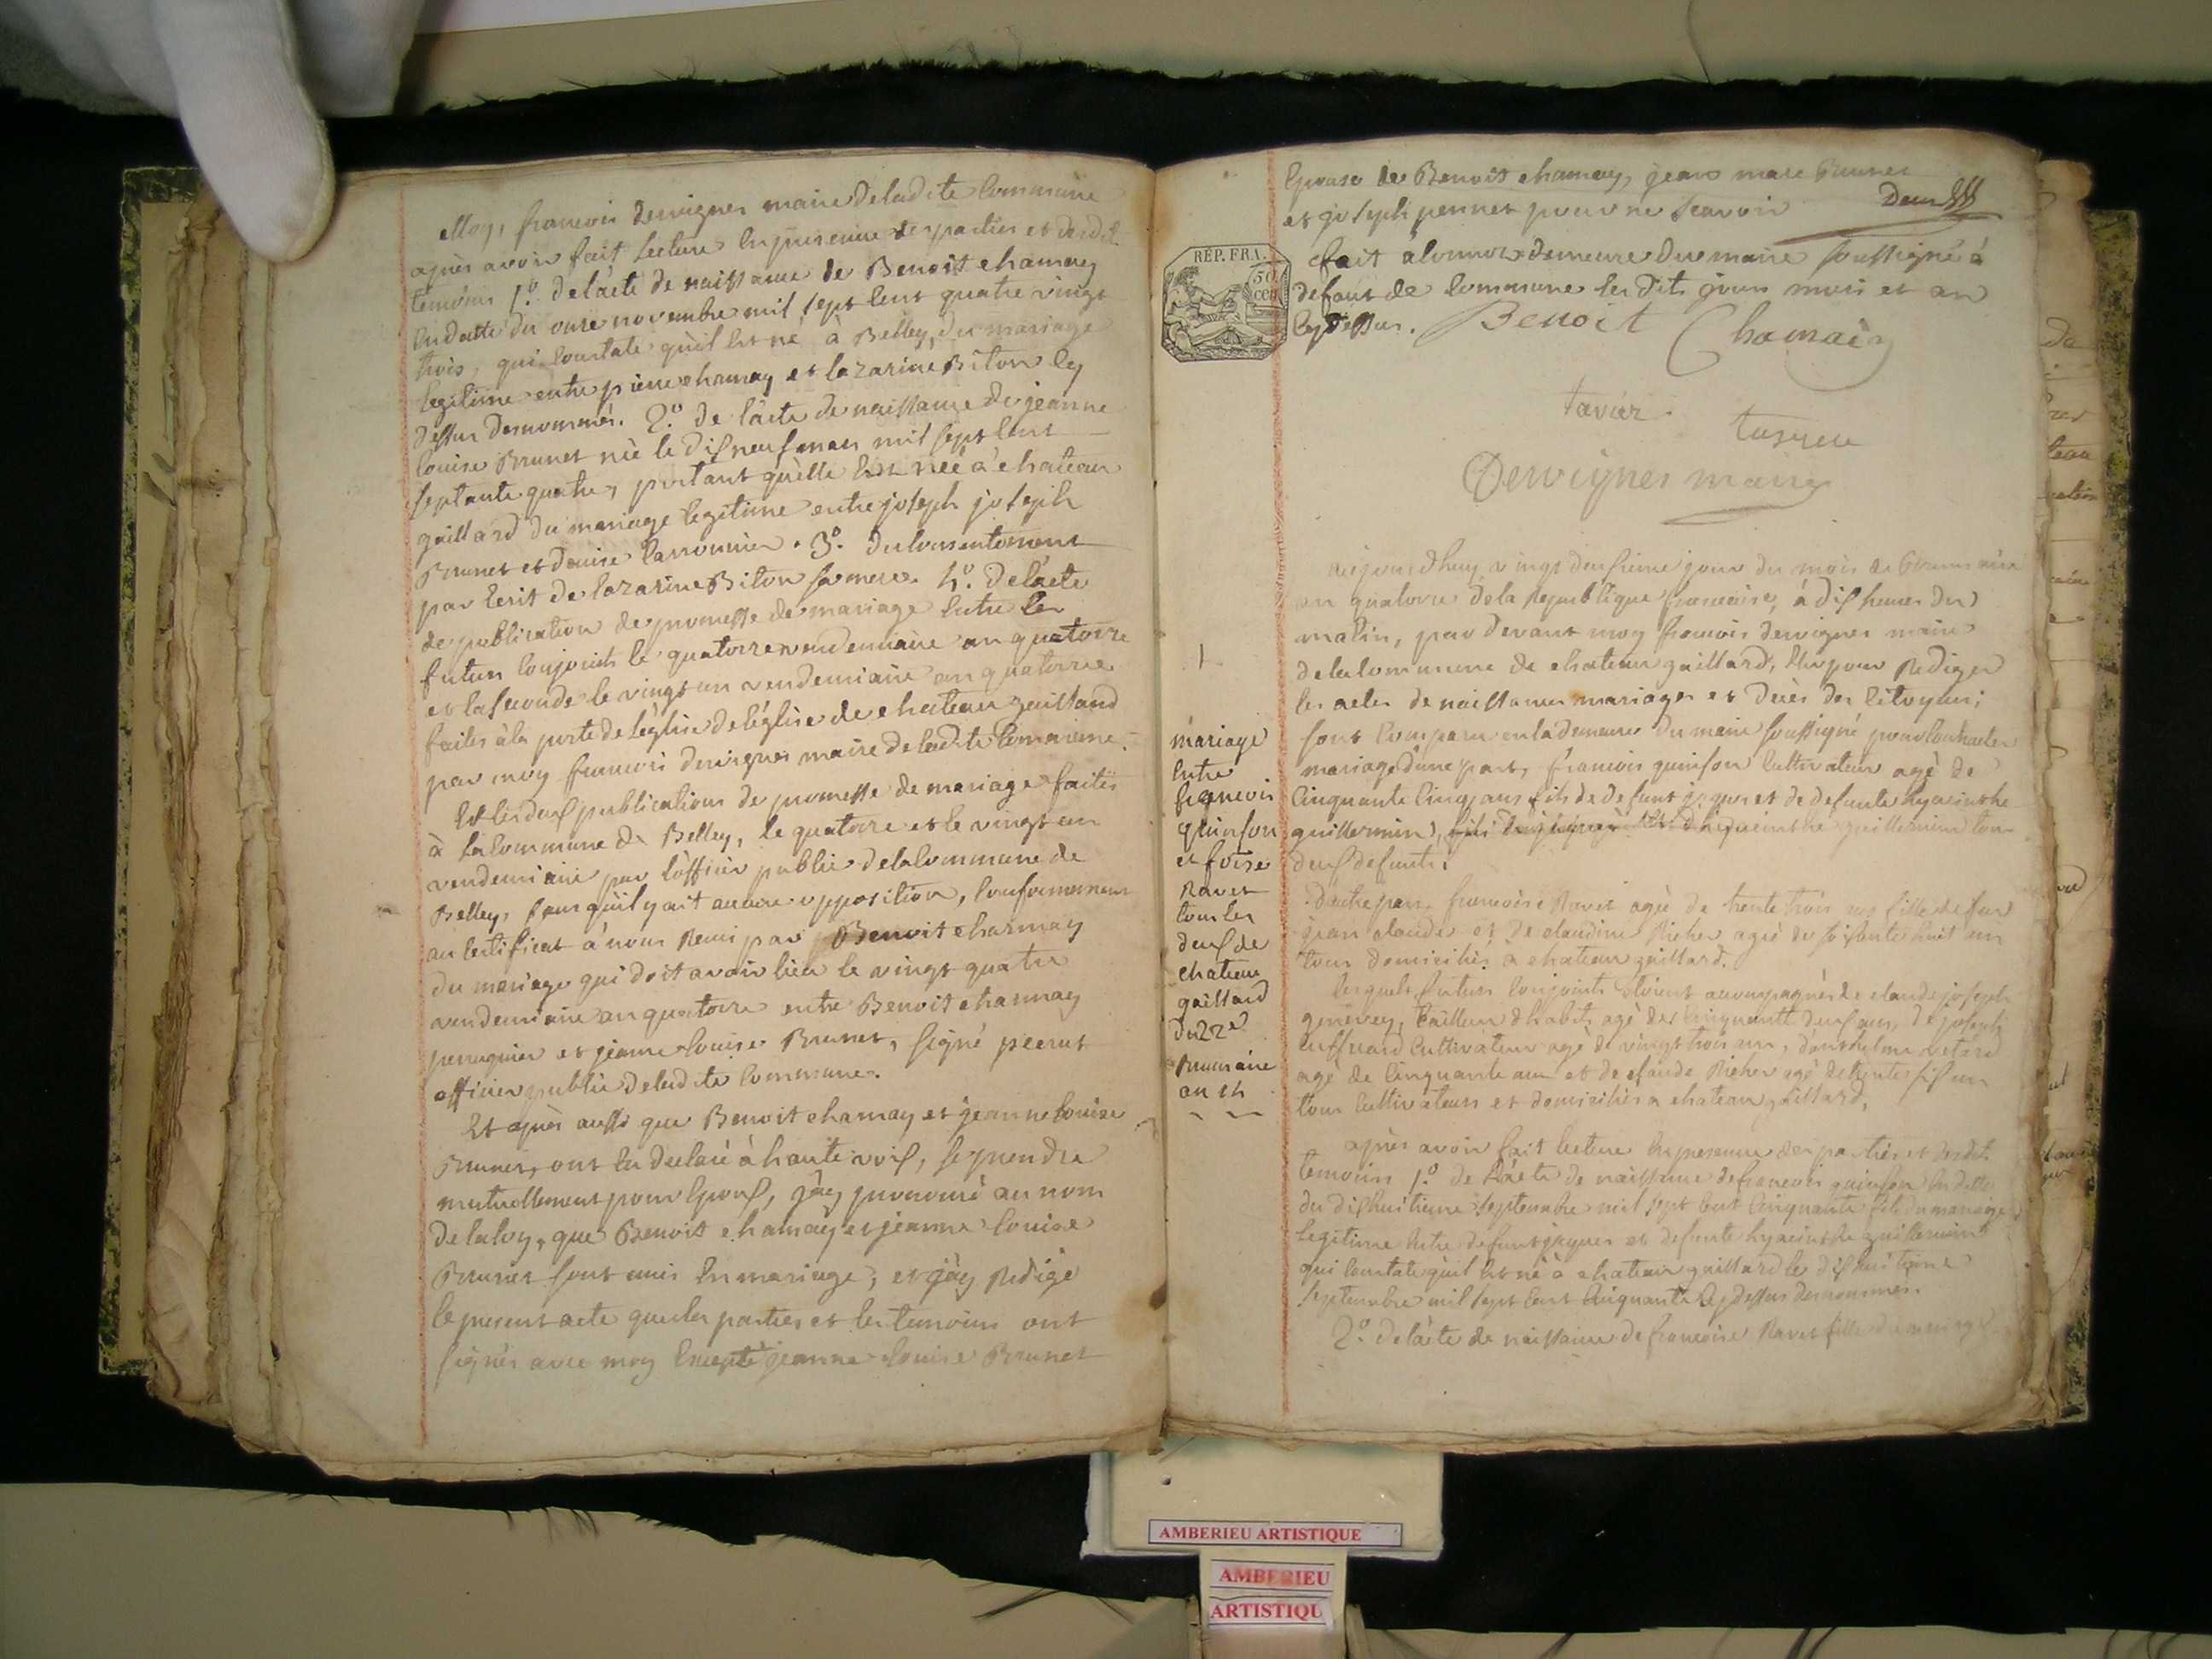 Moy, francois dervignes maire deladite Commune
apres avoir fait lecture En presence des parties et desdit
temoins 1.o delàcte de naissance de Benoit chamay
En datte du onze novembre mil sept Cent quatre vingt
trois, qui Constate quil Est né à Belley, du mariage
legitime entre pierre chamay et lazarine Biton Cy
dessus denommés. 2.o de làcte de naissance de jeanne
louise Brunet née le dix neuf mars mil sept Cent
septante quatre, portant quèlle Est neé à chateau
gaillard du mariage legitime entre joseph joseph
Brunet et denise . 3.o du Consentement
par Ecrit de lazarine Biton sa mere. 4.o delàcte
de publication de promesse de mariage Entre les
futurs Conjoints le quatorze vendemiaire an quatorze
et la seconde le vingt un vendemiaire an quatorze
faites à la porte de léglise deléglise de chateau gaillard
par moy francois dervignes maire deladite Commune.
Et les deux publications de promesse de mariage faites
à la Commune de Belley, le quatorze et le vingt un
vendemiaire par lòfficier public dela Commune de
Belley, sans quil y ait aucune opposition, Conformement
au Certificat à nous Remis par Benoit charmay
du mariage qui doit avoir lieu le vingt quatre
vendemiaire an quatorze entre Benoit charmay
perruquier et jeanne louise Brunet, signé
officier public deladite Commune.
Et après aussi que Benoit chamay et jeanne louise
Brunet, ont Eu declaré à haute voix, se prendre
mutuellement pour Epoux, jày prononcé au nom
dela loy, que Benoit chamay et jeanne louise
Brunet sont unis En mariage, et jày Redigé
le present acte que les parties et les temoins ont
signés avec moy Excepté jeanne louise Brunet
Epouse de Benoit chamay, jean marc Brunet
et joseph pennet pour ne scavoir
fait à la demeure du maire soussigné à
defaut de Commune les dits jours mois et an
Cy dessus. Benoit Chamaiy
tavier
Dervignes maire
RÉP. FRA.
50
cen
aujourdhuy vingt deuxieme jour du mois de Brumaire
an quatorze dela Republique francaise, à dix heures du
matin, par devant moy francois dervignes maire
dela Commune de chateau gaillard, Elu pour Rediger
les actes de naissances mariages et decès des Citoyens;
sont Comparu en la demeure du maire soussigné pour Contracter
mariage dùne part, francois quinson Cultivateur agé de
Cinquante Cinq ans fils de defunt jaques et de defunte hyacinthe
guillermin, guillermin tous
deux defunts.
dàutre part francoise Ravet agée de trente trois ans fille de feu
jean claude et de claudine Richer agée de soixante huit ans
tous domiciliés à chateau gaillard.
lesquels futurs Conjoints etoient accompagnés de claude joseph
genevey, tailleur dhabits agé de Cinquante deux ans, de joseph
Cultivateur agé de vingt trois ans,
agé de Cinquante ans et de claude Richer agé de trente six ans
tous Cultivateurs et domiciliés a chateau gaillard,
après avoir fait lecture En presence des parties et desdits
temoins 1.o de làcte de naissance de francois quinson En datte
du dix huitieme septembre mil sept Cent Cinquante fils du mariage
legitime Entre defunt jaques et defunte hyacinthe guillermin
qui Constate quil Est né à chateau gaillard le dix huitieme
septembre mil sept Cent Cinquante Cy dessus denommés.
2.o delàcte de naissance de francoise Ravet fille du mariage
mariage
Entre
francois
quinson
et foise
Ravet
tous les
deux de
chateau
gaillard
du 22e
Brumaire
an 14
AMBERIEU ARTISTIQUE
AMBERIEU
ARTISTIQU